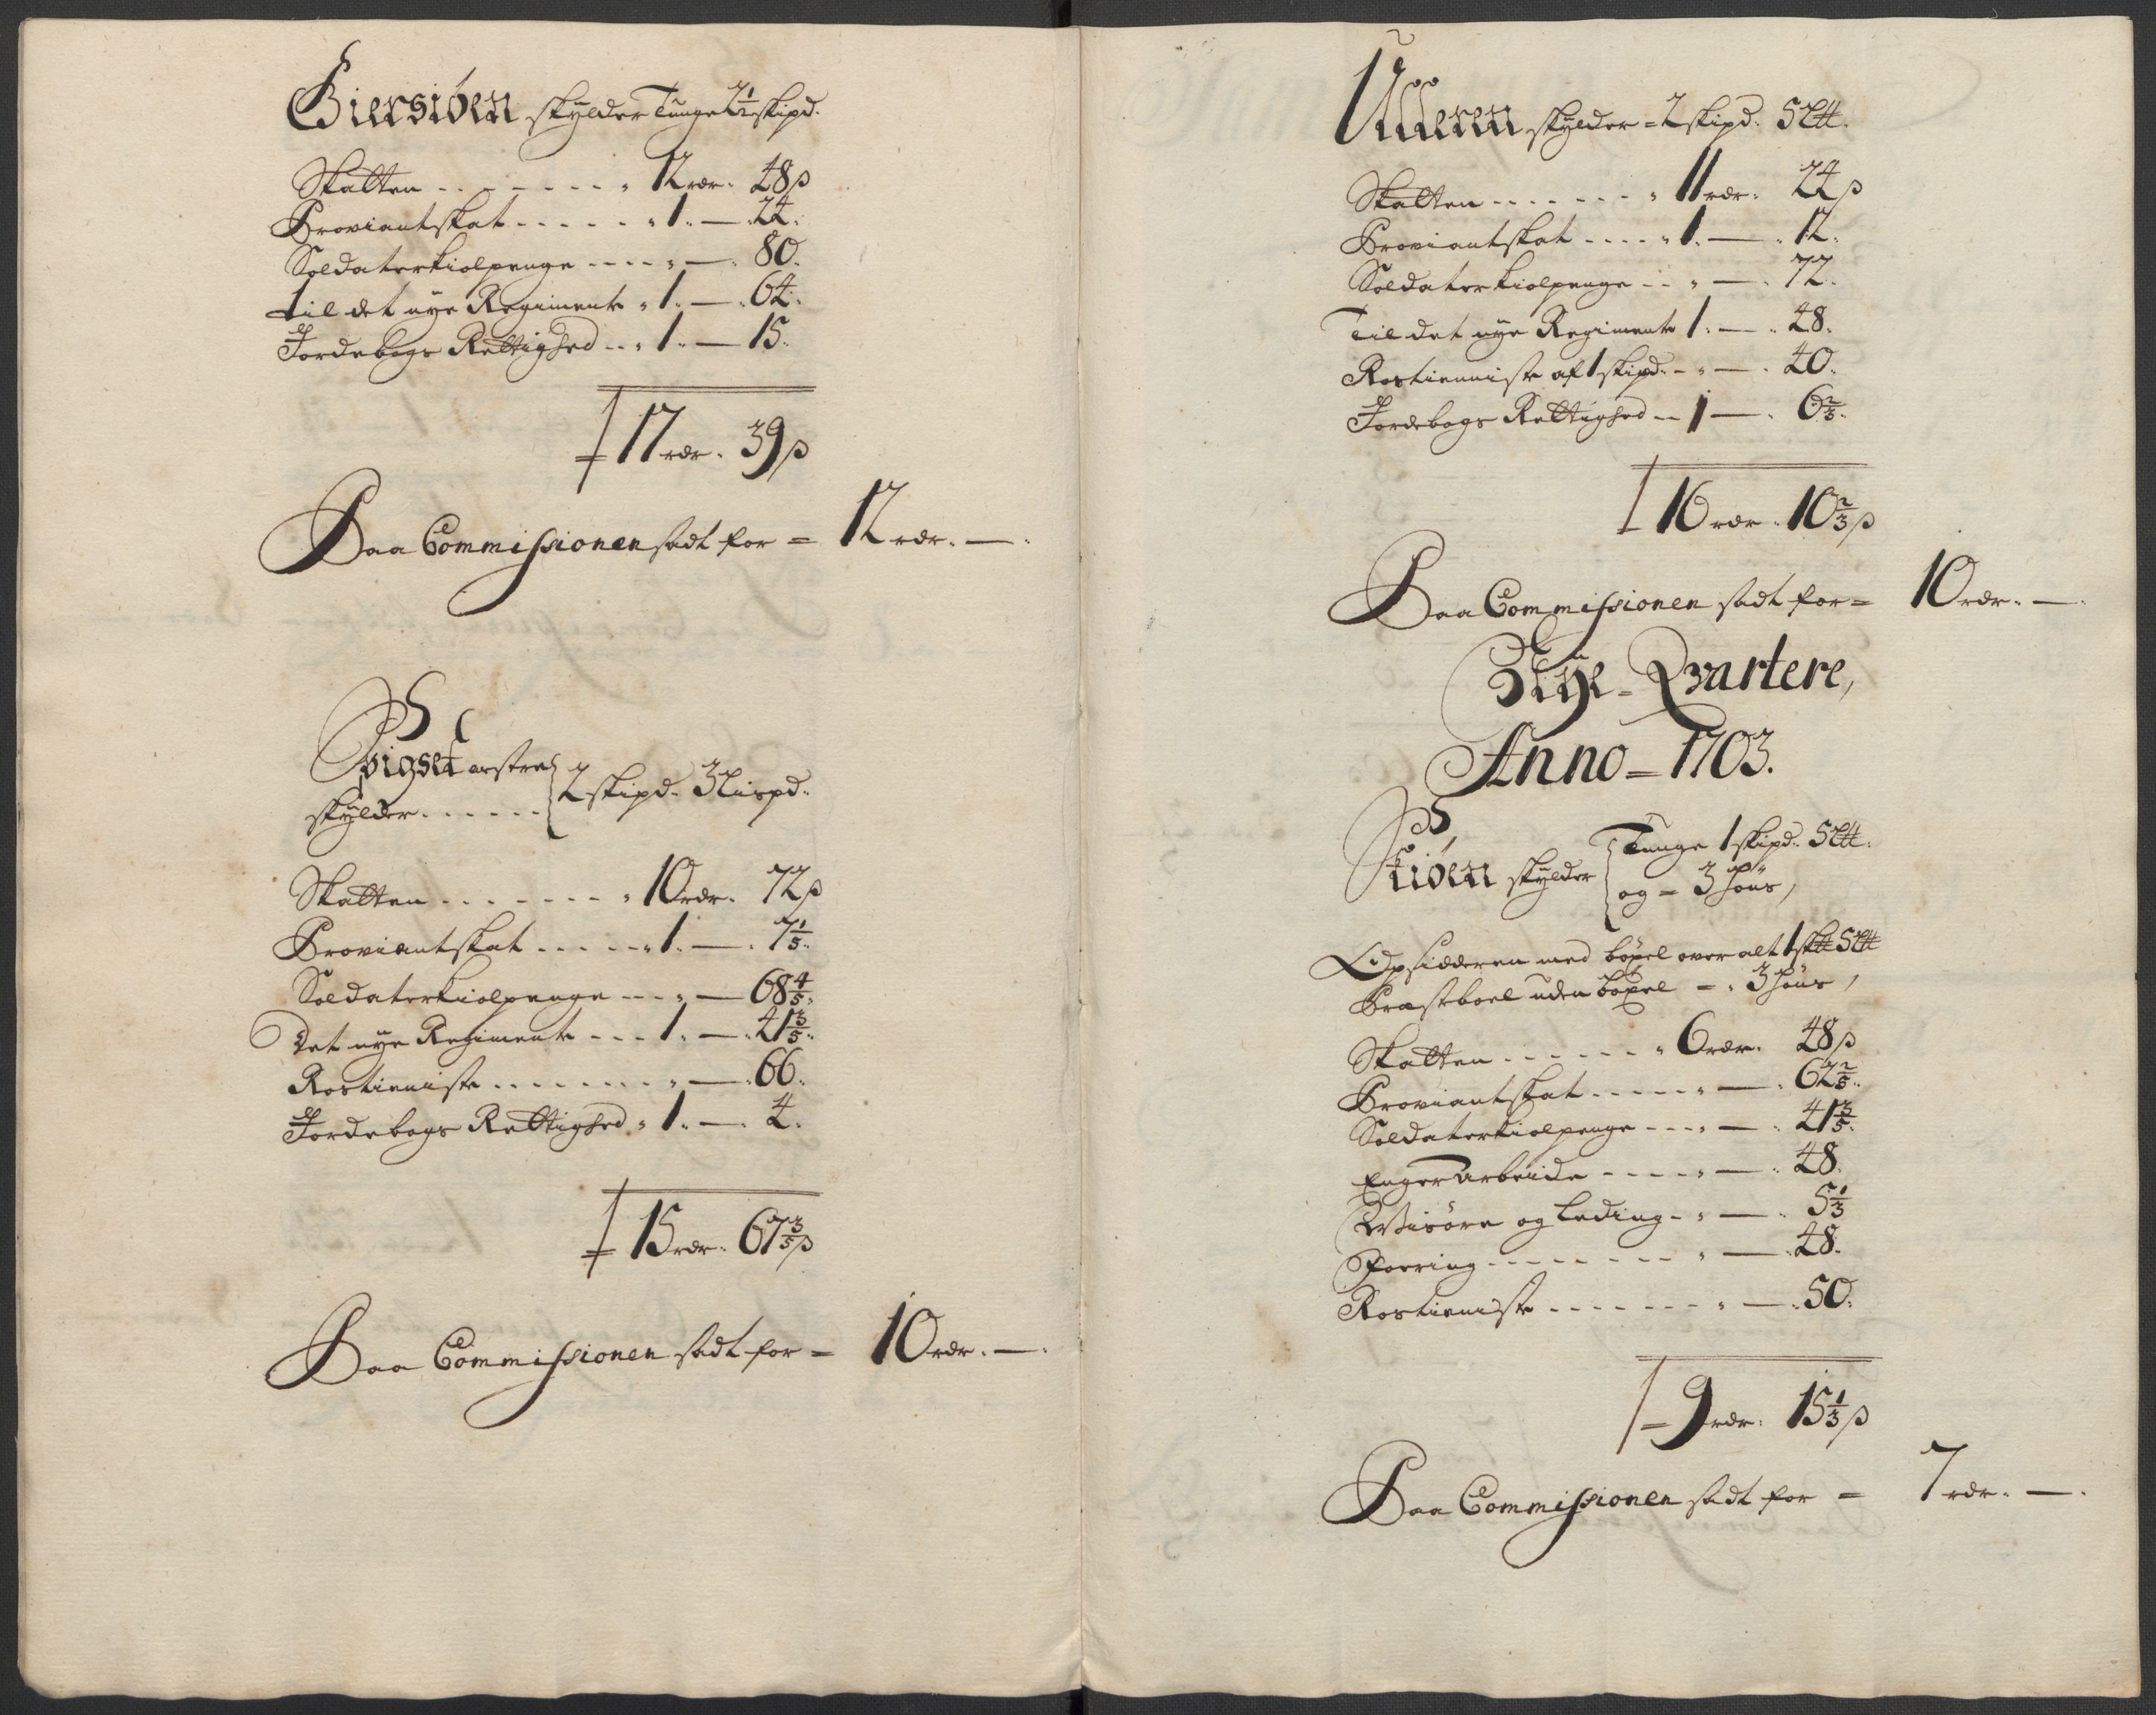 Giersiøen skylder Tunge 2½ skipd.
Skatten . . . . . . . 12 rdr. 48 ß
Proviantskat . . . . . 1. — 24.
Soldaterkiolpenge . . . . — 80.
Til det nye Regimente . 1. — 64.
Jordebogs Rettighed . . 1. — 15.
17 rdr. 39 ß
Paa Commissionen sadt for = 12 rdr. —.
Svigset østre
skylder . . . . . . 2 skipd. 3 Lispd.
Skatten . . . . . . . 10 rdr. 72 ß
Proviantskat . . . . . 1. — 7 1/5.
Soldaterkiolpenge . . . — 68 4/5.
Det nye Regimente . . . 1. — 41 3/5.
Rostieniste . . . . . . . — 66.
Jordebogs Rettighed . 1. — 4.
15 rdr. 67 3/5 ß
Paa Commissionen sadt for = 10 rdr. —.
Ulleren skylder = 2 skipd. 5 L℔.
Skatten . . . . . . . 11 rdr. 24 ß
Proviantskat . . . . 1. — 12.
Soldaterkiolpenge . . . — 72.
Til det nye Regimente 1. — 48.
Rostienniste af 1 skipd. . — 40.
Jordebogs Rettighed . . 1 — 6 2/3.
16 rdr. 10 2/3 ß
Paa Commissionen sadt for = 10 rdr. —.
Qvartere,
Anno = 1703.
Stiøen skylder Tunge 1 skipd. 5 L℔.
og = 3 Høns,
Opsidderen med bøxel over alt 1 sk℔ 5 L℔
Præsteboel uden bøxel = . 3 Høns,
Skatten . . . . . . 6 rdr. 48 ß
Proviantskat . . . . . — 62 2/5.
Soldaterkiolpenge . . . — 41 3/5.
Enger Arbeide . . . . . — 48.
Wisøre og Leding . . — 5 1/3
Foering . . . . . . . . — 48.
Rostieniste . . . . . . . — 50.
9 rdr. 15 1/3 ß
Paa Commissionen sadt for = 7 rdr. —.